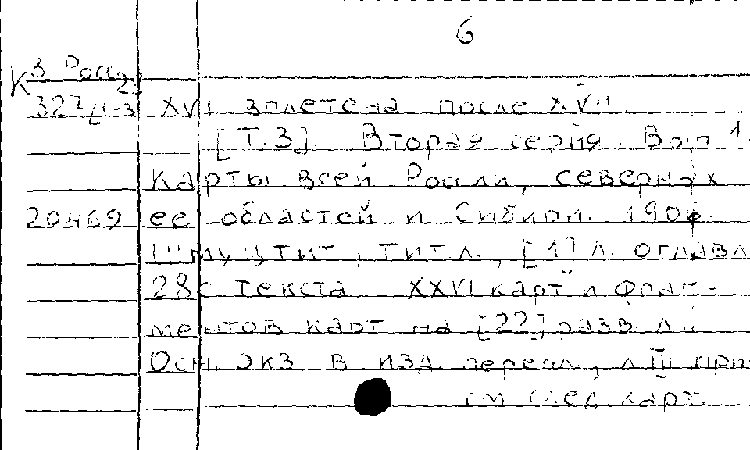 6
К3 Росс
2
327д-3 XVI заплетена после XVII
[Т.3] Вторая серия. Вып 1.
Карты всей России, северных
20469 ее областей и Сибири. 1906
Шмуцтит, тит.л., [1] л. оглавл
28с текста XXVI карт и фраг-
ментов карт на [22] разв л
Осн. экз в изд. перепл,
см след карт